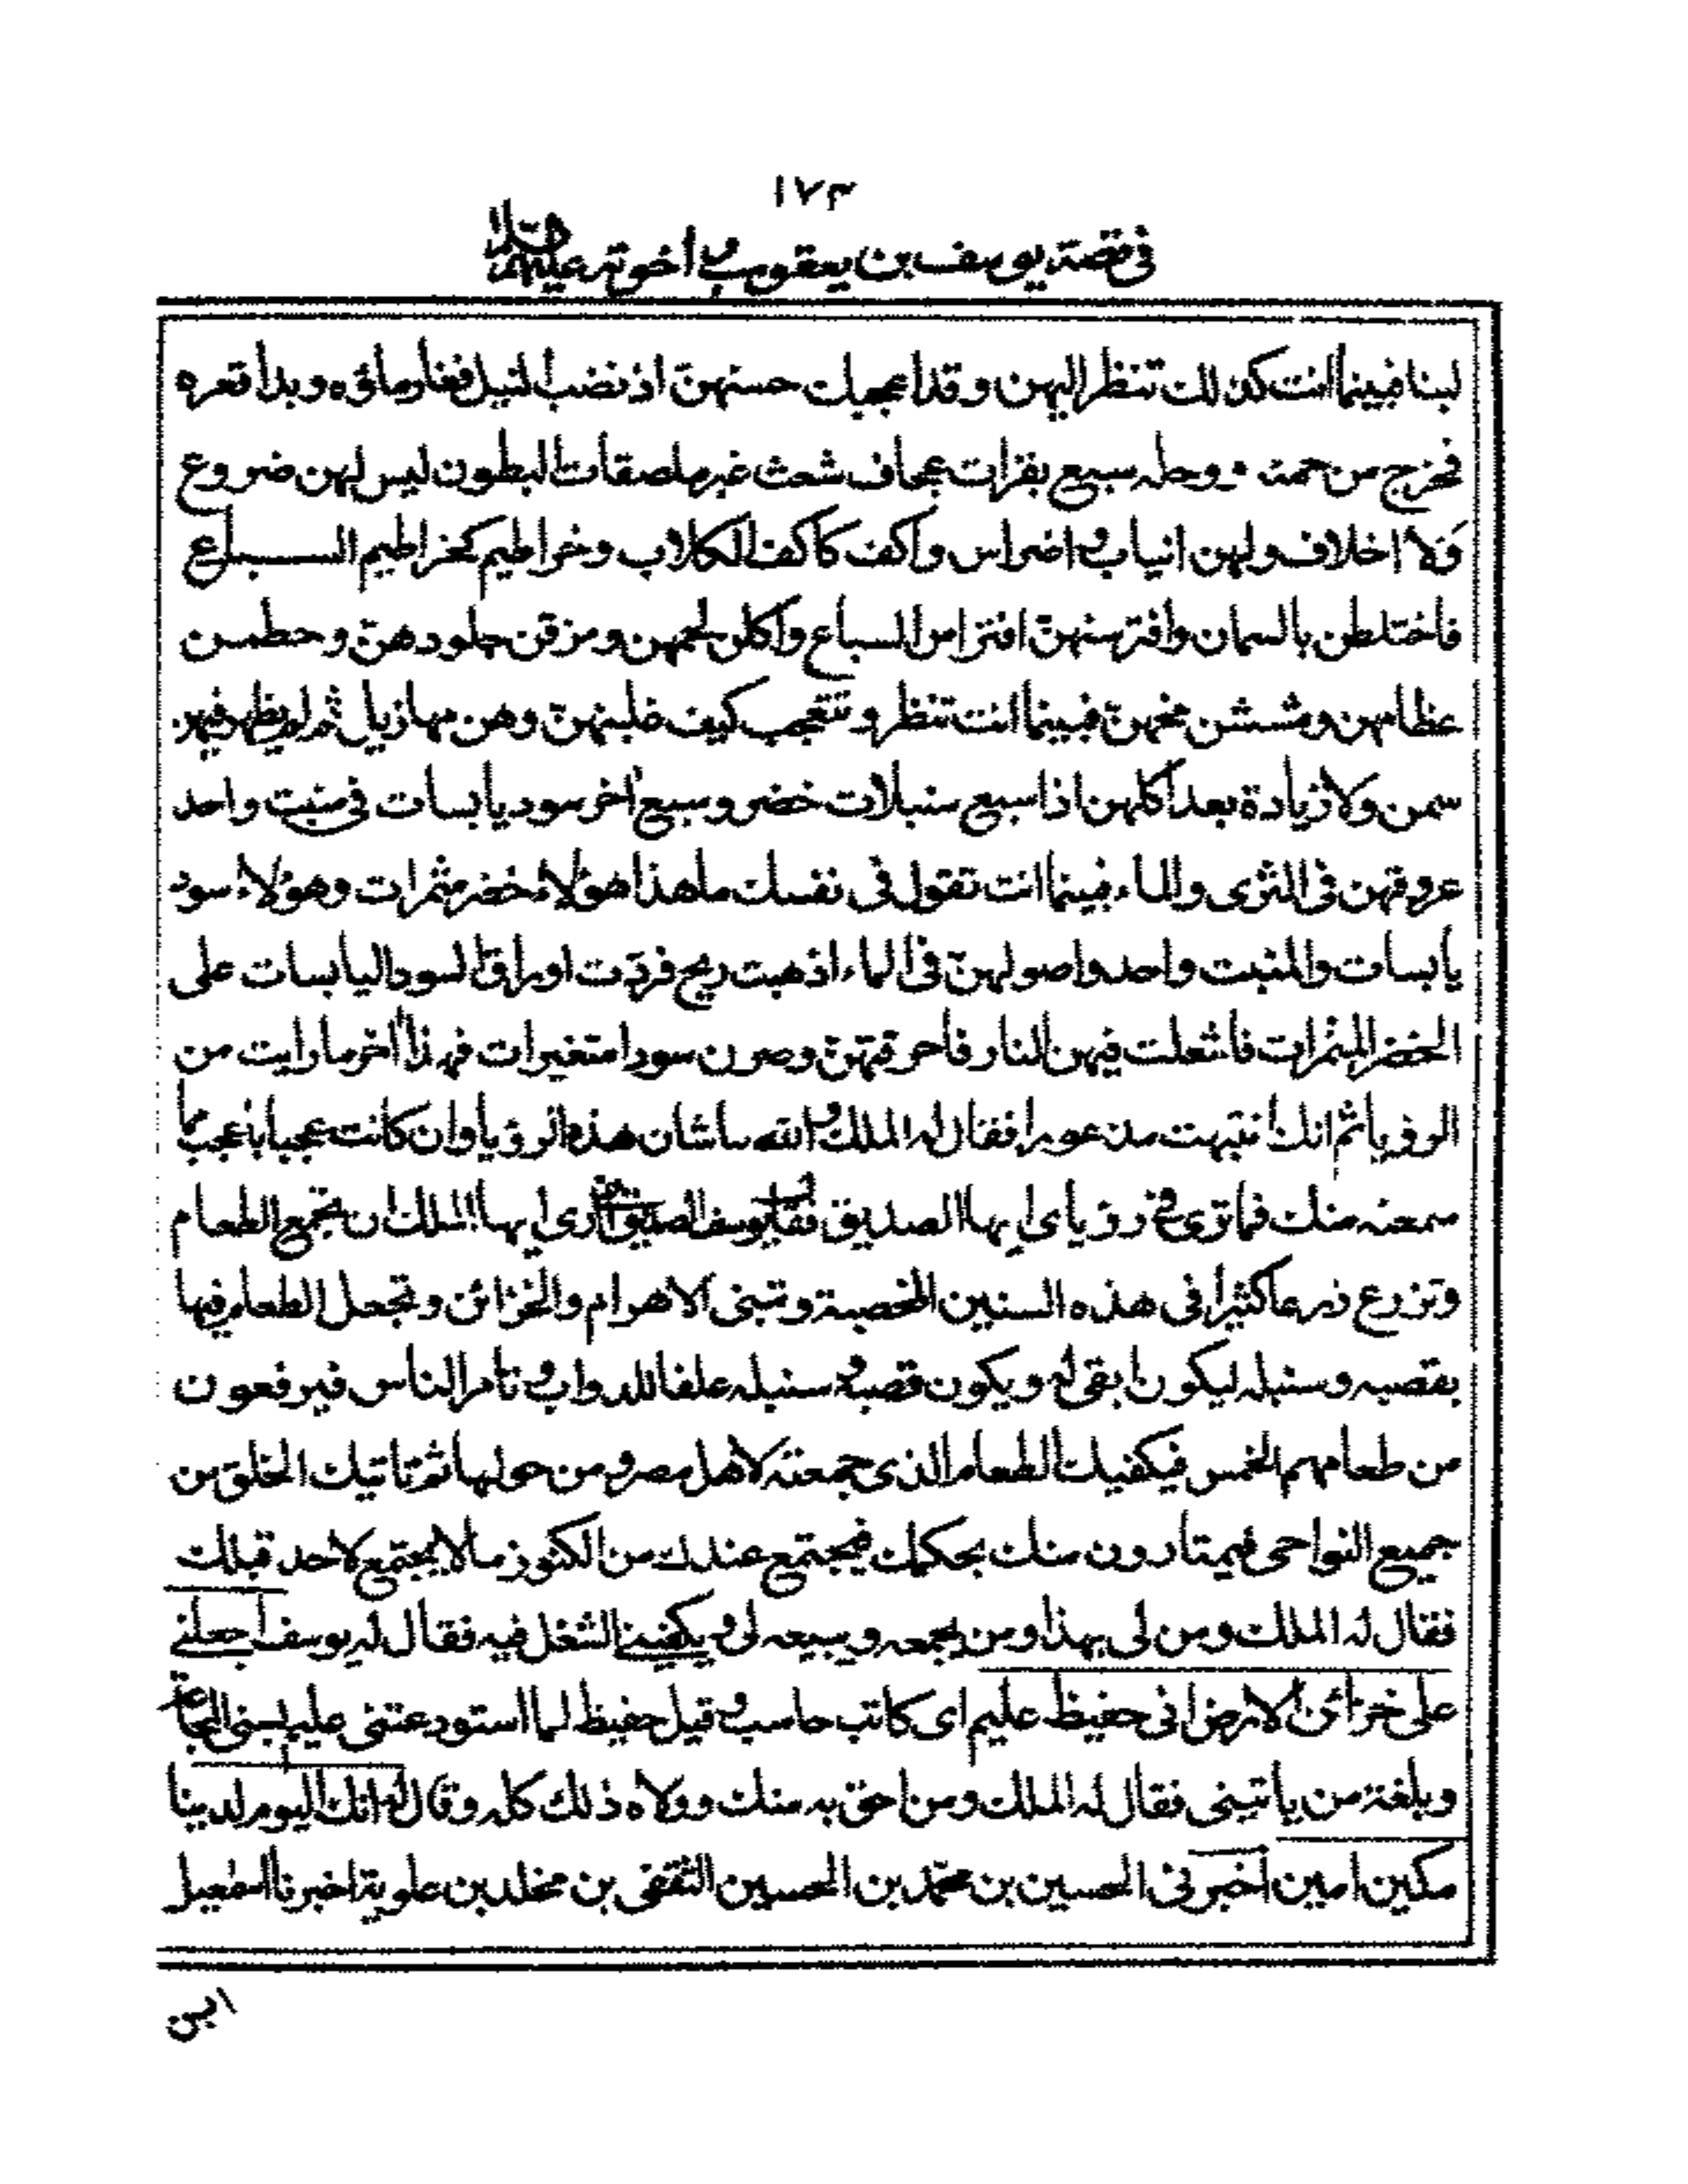 ١٧٣
فى قصة يوسف بن يعقوب و اخوته عليهم السلام
لبنا فبينما انت كذلك تنظر اليهن وقد اعجبك حسنهن اذ نضب النيل فغار ماؤه وبدا قعره
فخرج من حمئه ووحله سبع بقرات عجاف شعث غبر ملصقات البطون ليس لهن ضروع
ولا اخلاف ولهن انياب واضراس واكف كاكف الكلاب وخراطيم كخراطيم السباع
فاختلطن بالسمان وافترسنهن افتراس السباع واكلن لحمهن ومزقن جلودهن وحطمن
عظامهن ومششن مخهن فبينما انت تنظر وتتعجب كيف غلبنهن وهن مهازيل ثم لم يظهر فيهن
سمن ولا زيادة بعد اكلهن اذا سبع سنبلات خضر وسبع اخر سود يابسات فى منبت واحد
عروقهن فى الثرى والماء فبينما انت تقول فى نفسك ما هذا هؤلاء خضر مثمرات وهؤلاء سود
يابسات والمنبت واحد واصولهن فى الماء اذ هبت ريح فردّت اوراق السود اليابسات على
الخضر المثمرات فاشعلت فيهن النار فاحرقتهن وصرن سودا متغيرات فهذا اخر ما رايت من
الرؤيا ثم انك انتبهت مذعورا فقال له الملك والله ما شان هذه الرؤيا وان كانت عجبا باعجب مما
سمعته منك فما ترى فى رؤياى ايها الصديق فقال يوسف الصديق ارى ايها الملك ان تجمع الطعام
وتزرع زرعا كثيرا فى هذه السنين المخصبة وتبنى الاهرام والخزائن وتجعل الطعام فيها
بقصبه وسنبله ليكون ابقى له ويكون قصبه وسنبله علفا للدواب وتامر الناس فيرفعون
من طعامهم الخمس فيكفيك الطعام الذى جمعته لاهل مصر ومن حولها ثم تاتيك الخلق من
جميع النواحى فيمتارون منك بحكمك فيجتمع عندك من الكنوز مالا يجتمع لاحد قبلك
فقال له الملك ومن لى بهذا ومن يجمعه ويبيعه لى ويكفينى الشغل فيه فقال له يوسف اجعلنى
على خزائن الارض انى حفيظ عليم اى كاتب حاسب وقيل حفيظ لما استودعتنى عليم بسنى المجاعة
وبلغة من ياتينى فقال له الملك ومن احق به منك وولاه ذلك كله وقال له انك اليوم لدينا
مكين امين اخبرنى الحسين بن محمد بن الحسين الثقفى بن مخلد بن علوية اخبرنا اسمعيل
ابن